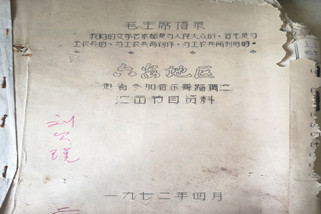 毛主席语录
我们的文学艺术都是为人民大众的，首先是为
工农兵的，为工农兵而创作，为工农兵所利用的。
六安地区
赴省参加音乐舞蹈调演
汇 节目资料
刘
一九七二年四月